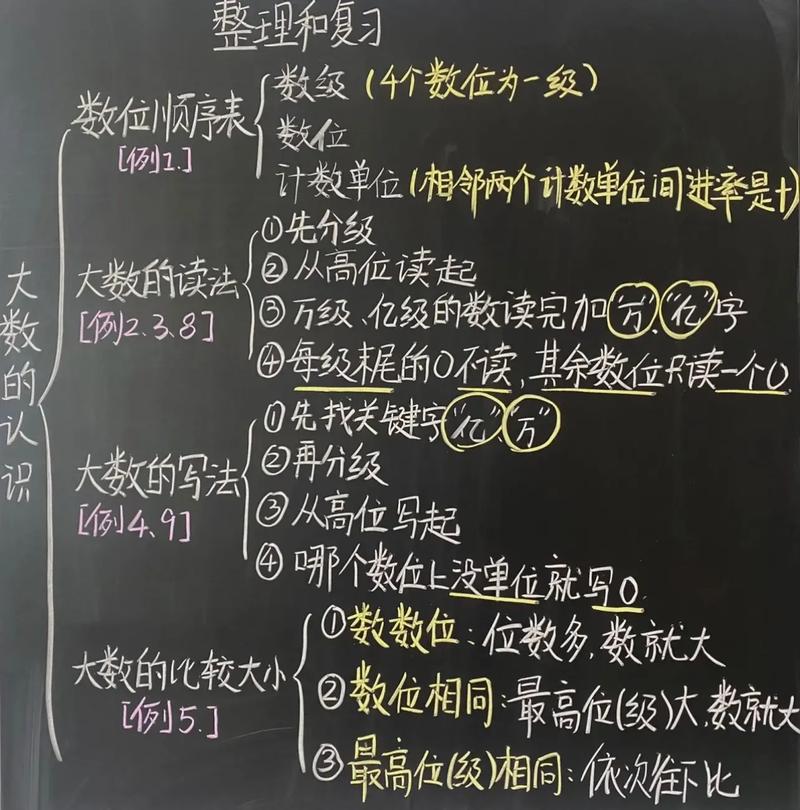 整理和复习
大数的认识
数位顺序表
[例1.]
数级（4个数位为一级）
数位
计数单位(相邻两个计数单位间进率是十)
大数的读法
[例2.3.8]
①先分级
②从高位读起
③万级、亿级的数读完加“万”、“亿”字
④每级末尾的0不读,其余数位只读一个0
大数的写法
[例4、9]
①先找关键字“亿”、“万”
②再分级
③从高位写起
④哪个数位上没单位就写0.
大数的比较大小
[例5.]
①数数位:位数多,数就大
②数位相同:最高位(级)大,数就大
③最高位(级)相同:依次往下比